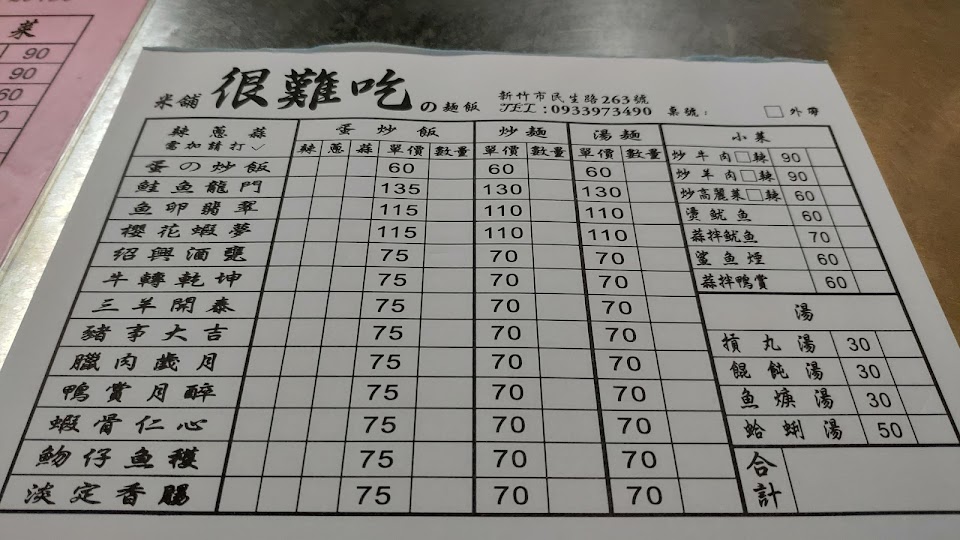 菜
90
90
60
0
米舖 很難吃 の麵飯 新竹市民生路263號
TEL:0933973490 桌號: □外帶
辣蔥蒜 蛋炒飯 炒麵 湯麵 小菜
需加請打✓ 辣 蔥 蒜 單價 數量 單價 數量 單價 數量
蛋の炒飯 60 60 60 炒牛肉□辣 90
鮭魚龍門 135 130 130 炒羊肉□辣 90
魚卵翡翠 115 110 110 炒高麗菜□辣 60
櫻花蝦夢 115 110 110 燙魷魚 60
紹興酒甕 75 70 70 蒜拌魷魚 70
牛轉乾坤 75 70 70 鯊魚煙 60
三羊開泰 75 70 70 蒜拌鴨賞 60
豬事大吉 75 70 70 湯
臘肉歲月 75 70 70 摃丸湯 30
鴨賞月醉 75 70 70 餛飩湯 30
蝦骨仁心 75 70 70 魚焿湯 30
魩仔魚穫 75 70 70 蛤蜊湯 50
淡定香腸 75 70 70 合計